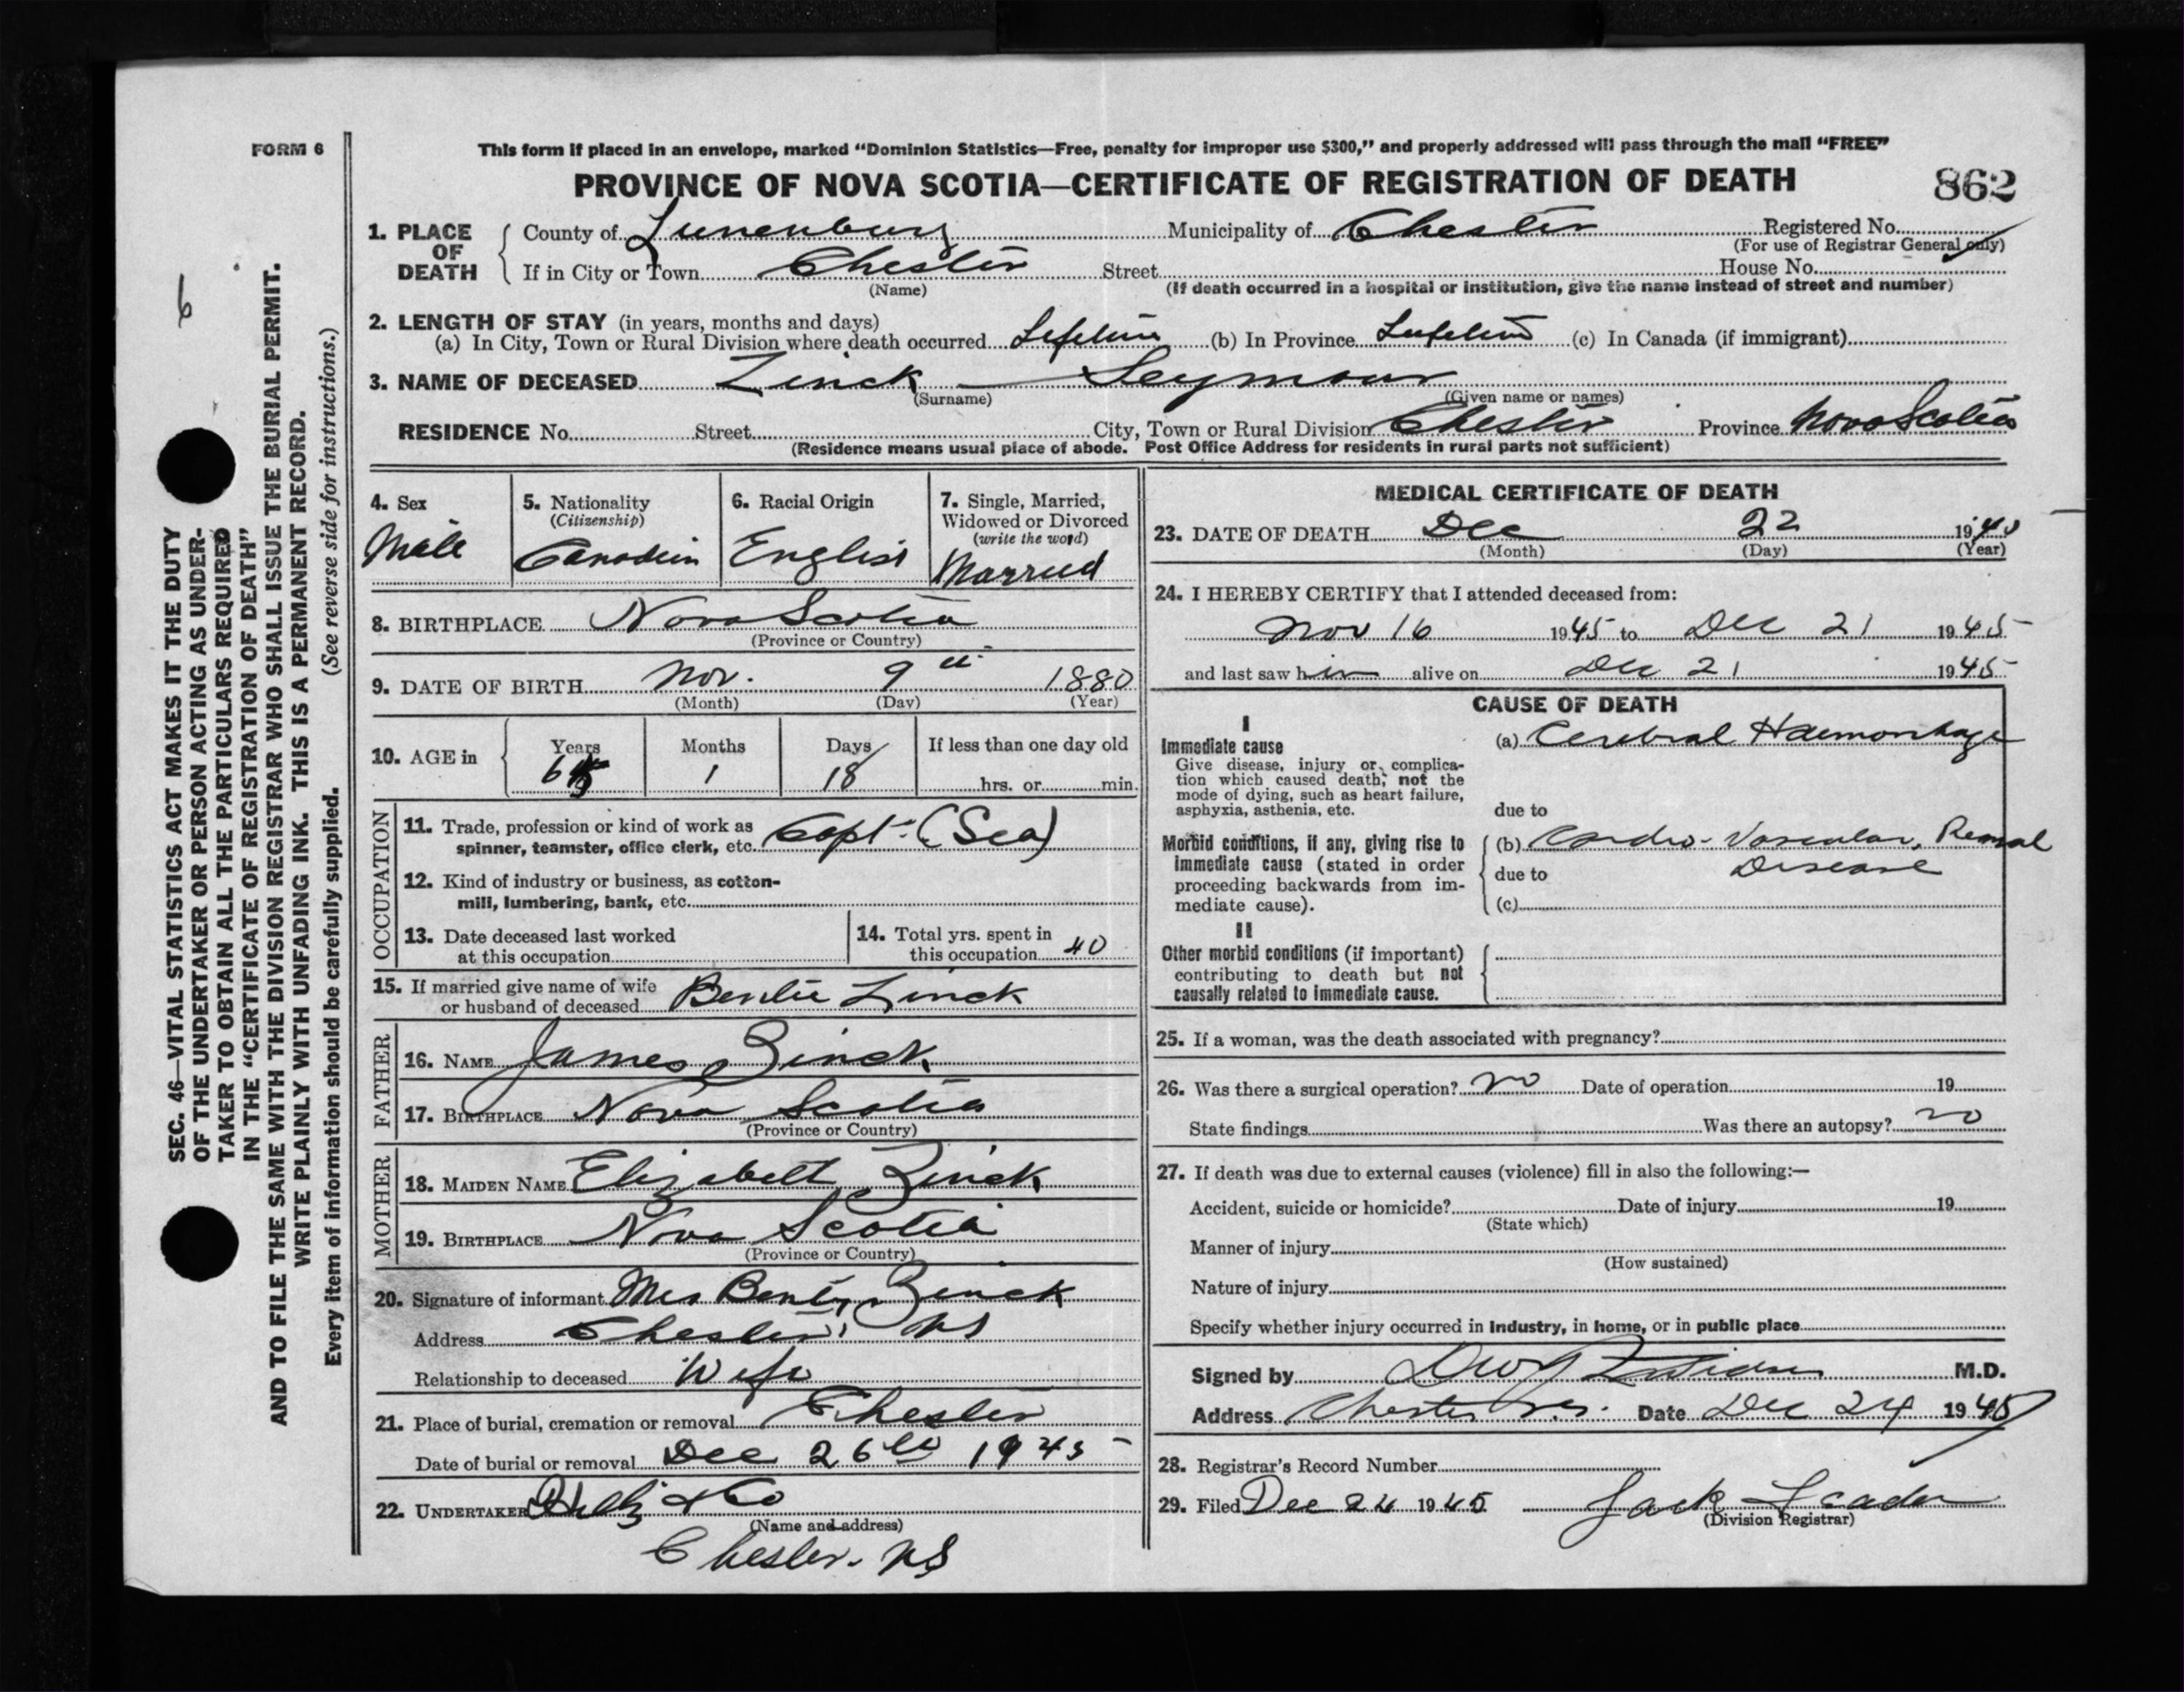 FORM 6
This form if placed in an envelope, marked “Dominion Statistics—Free, penalty for improper use $300,” and properly addressed will pass through the mail “FREE”
PROVINCE OF NOVA SCOTIA—CERTIFICATE OF REGISTRATION OF DEATH 862
1. PLACE OF DEATH County of Lunenburg Municipality of Chester Registered No.
(For use of Registrar General only)
If in City or Town Chester Street House No.
(Name) (If death occurred in a hospital or institution, give the name instead of street and number)
2. LENGTH OF STAY (in years, months and days)
(a) In City, Town or Rural Division where death occurred Lifetime (b) In Province Lifetime (c) In Canada (if immigrant)
3. NAME OF DECEASED Zinck — Seymour
(Surname) (Given name or names)
RESIDENCE No. Street City, Town or Rural Division Chester Province Nova Scotia
(Residence means usual place of abode. Post Office Address for residents in rural parts not sufficient)
4. Sex Male
5. Nationality (Citizenship) Canadian
6. Racial Origin English
7. Single, Married, Widowed or Divorced (write the word) Married
8. BIRTHPLACE Nova Scotia
(Province or Country)
9. DATE OF BIRTH Nov. 9th 1880
(Month) (Day) (Year)
10. AGE in Years 65 Months 1 Days 18 If less than one day old
hrs. or min.
OCCUPATION
11. Trade, profession or kind of work as
spinner, teamster, office clerk, etc. Capt. (Sea)
12. Kind of industry or business, as cotton-
mill, lumbering, bank, etc.
13. Date deceased last worked
at this occupation
14. Total yrs. spent in
this occupation 40
15. If married give name of wife
or husband of deceased Zinck
FATHER
16. NAME James Zinck
17. BIRTHPLACE Nova Scotia
(Province or Country)
MOTHER
18. MAIDEN NAME Elizabeth Zinck
19. BIRTHPLACE Nova Scotia
(Province or Country)
20. Signature of informant Mrs Zinck
Address Chester, NS
Relationship to deceased Wife
21. Place of burial, cremation or removal Chester
Date of burial or removal Dec 26th 1945
22. UNDERTAKER & Co
(Name and address)
Chester. NS
MEDICAL CERTIFICATE OF DEATH
23. DATE OF DEATH Dec 22 19
(Month) (Day) (Year)
24. I HEREBY CERTIFY that I attended deceased from:
Nov 16 1945 to Dec 21 1945
and last saw him alive on Dec 21 1945
CAUSE OF DEATH
I
Immediate cause
Give disease, injury or complica-
tion which caused death, not the
mode of dying, such as heart failure,
asphyxia, asthenia, etc.
(a) Cerebral Haemorrhage
due to
Morbid conditions, if any, giving rise to
immediate cause (stated in order
proceeding backwards from im-
mediate cause).
(b) Cardio-Vascular, Renal
due to Disease
(c)
II
Other morbid conditions (if important)
contributing to death but not
causally related to immediate cause.
25. If a woman, was the death associated with pregnancy?
26. Was there a surgical operation? no Date of operation 19
State findings Was there an autopsy? no
27. If death was due to external causes (violence) fill in also the following:—
Accident, suicide or homicide? Date of injury 19
(State which)
Manner of injury
(How sustained)
Nature of injury
Specify whether injury occurred in industry, in home, or in public place
Signed by M.D.
Address Chester N.S. Date Dec 24 1945
28. Registrar's Record Number
29. Filed Dec 24 1945 Jack
(Division Registrar)
6
SEC. 46—VITAL STATISTICS ACT MAKES IT THE DUTY
OF THE UNDERTAKER OR PERSON ACTING AS UNDER-
TAKER TO OBTAIN ALL THE PARTICULARS REQUIRED
IN THE “CERTIFICATE OF REGISTRATION OF DEATH”
AND TO FILE THE SAME WITH THE DIVISION REGISTRAR WHO SHALL ISSUE THE BURIAL PERMIT.
WRITE PLAINLY WITH UNFADING INK. THIS IS A PERMANENT RECORD.
Every item of information should be carefully supplied. (See reverse side for instructions.)